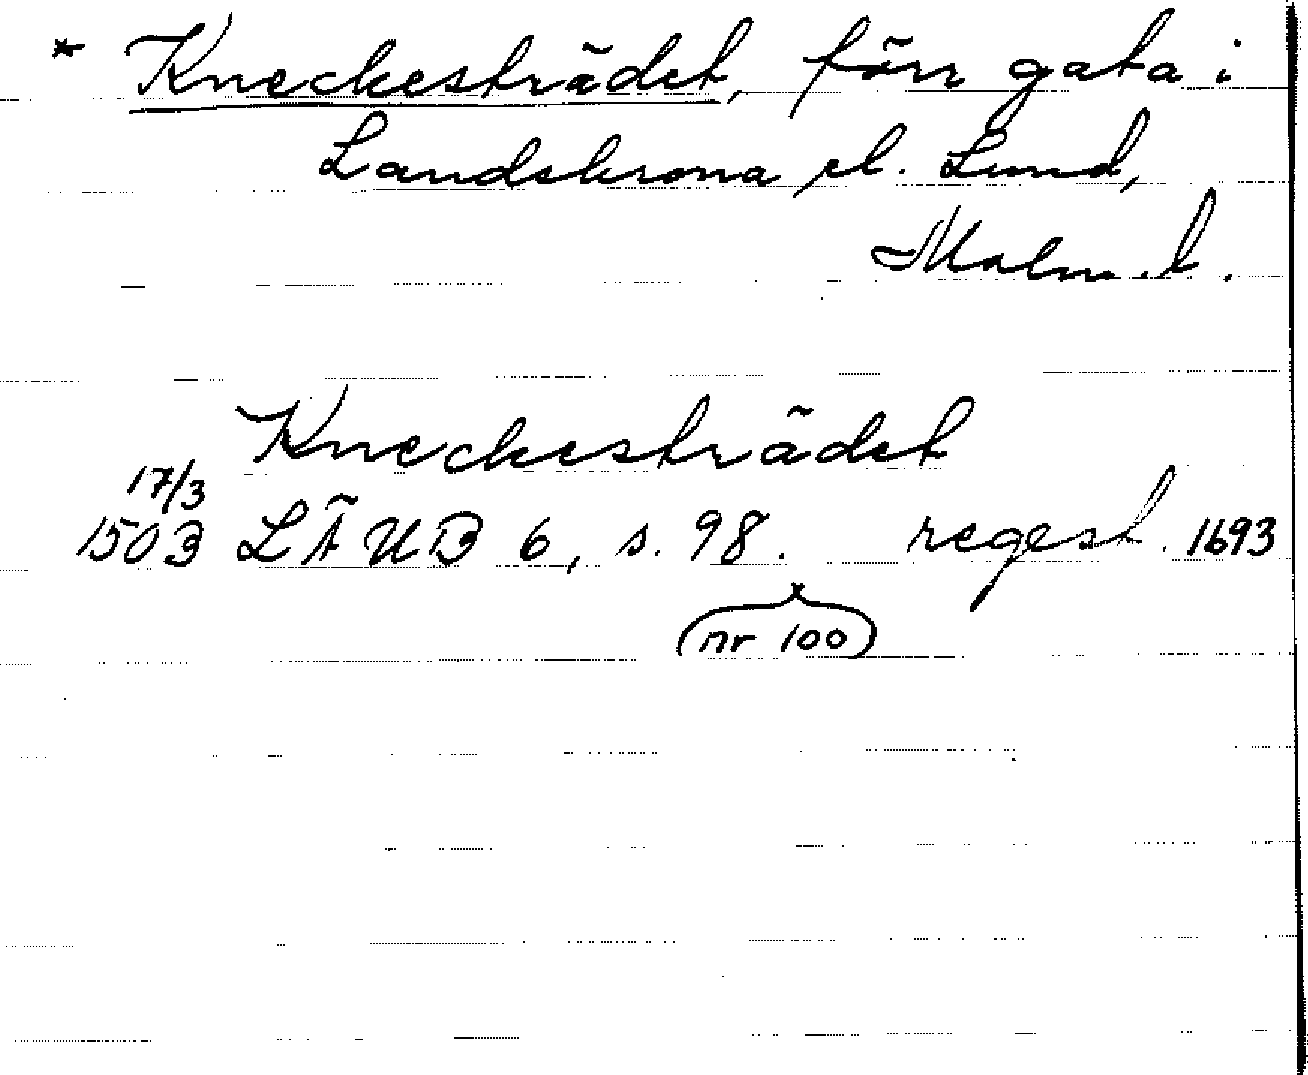 * Kneckesträdet, förr gata i
Landskrona el. Lund,
Malm. l.
Kneckesträdet
17/3
1503 LÄUB 6, s. 98. regest 1693
(nr 100)